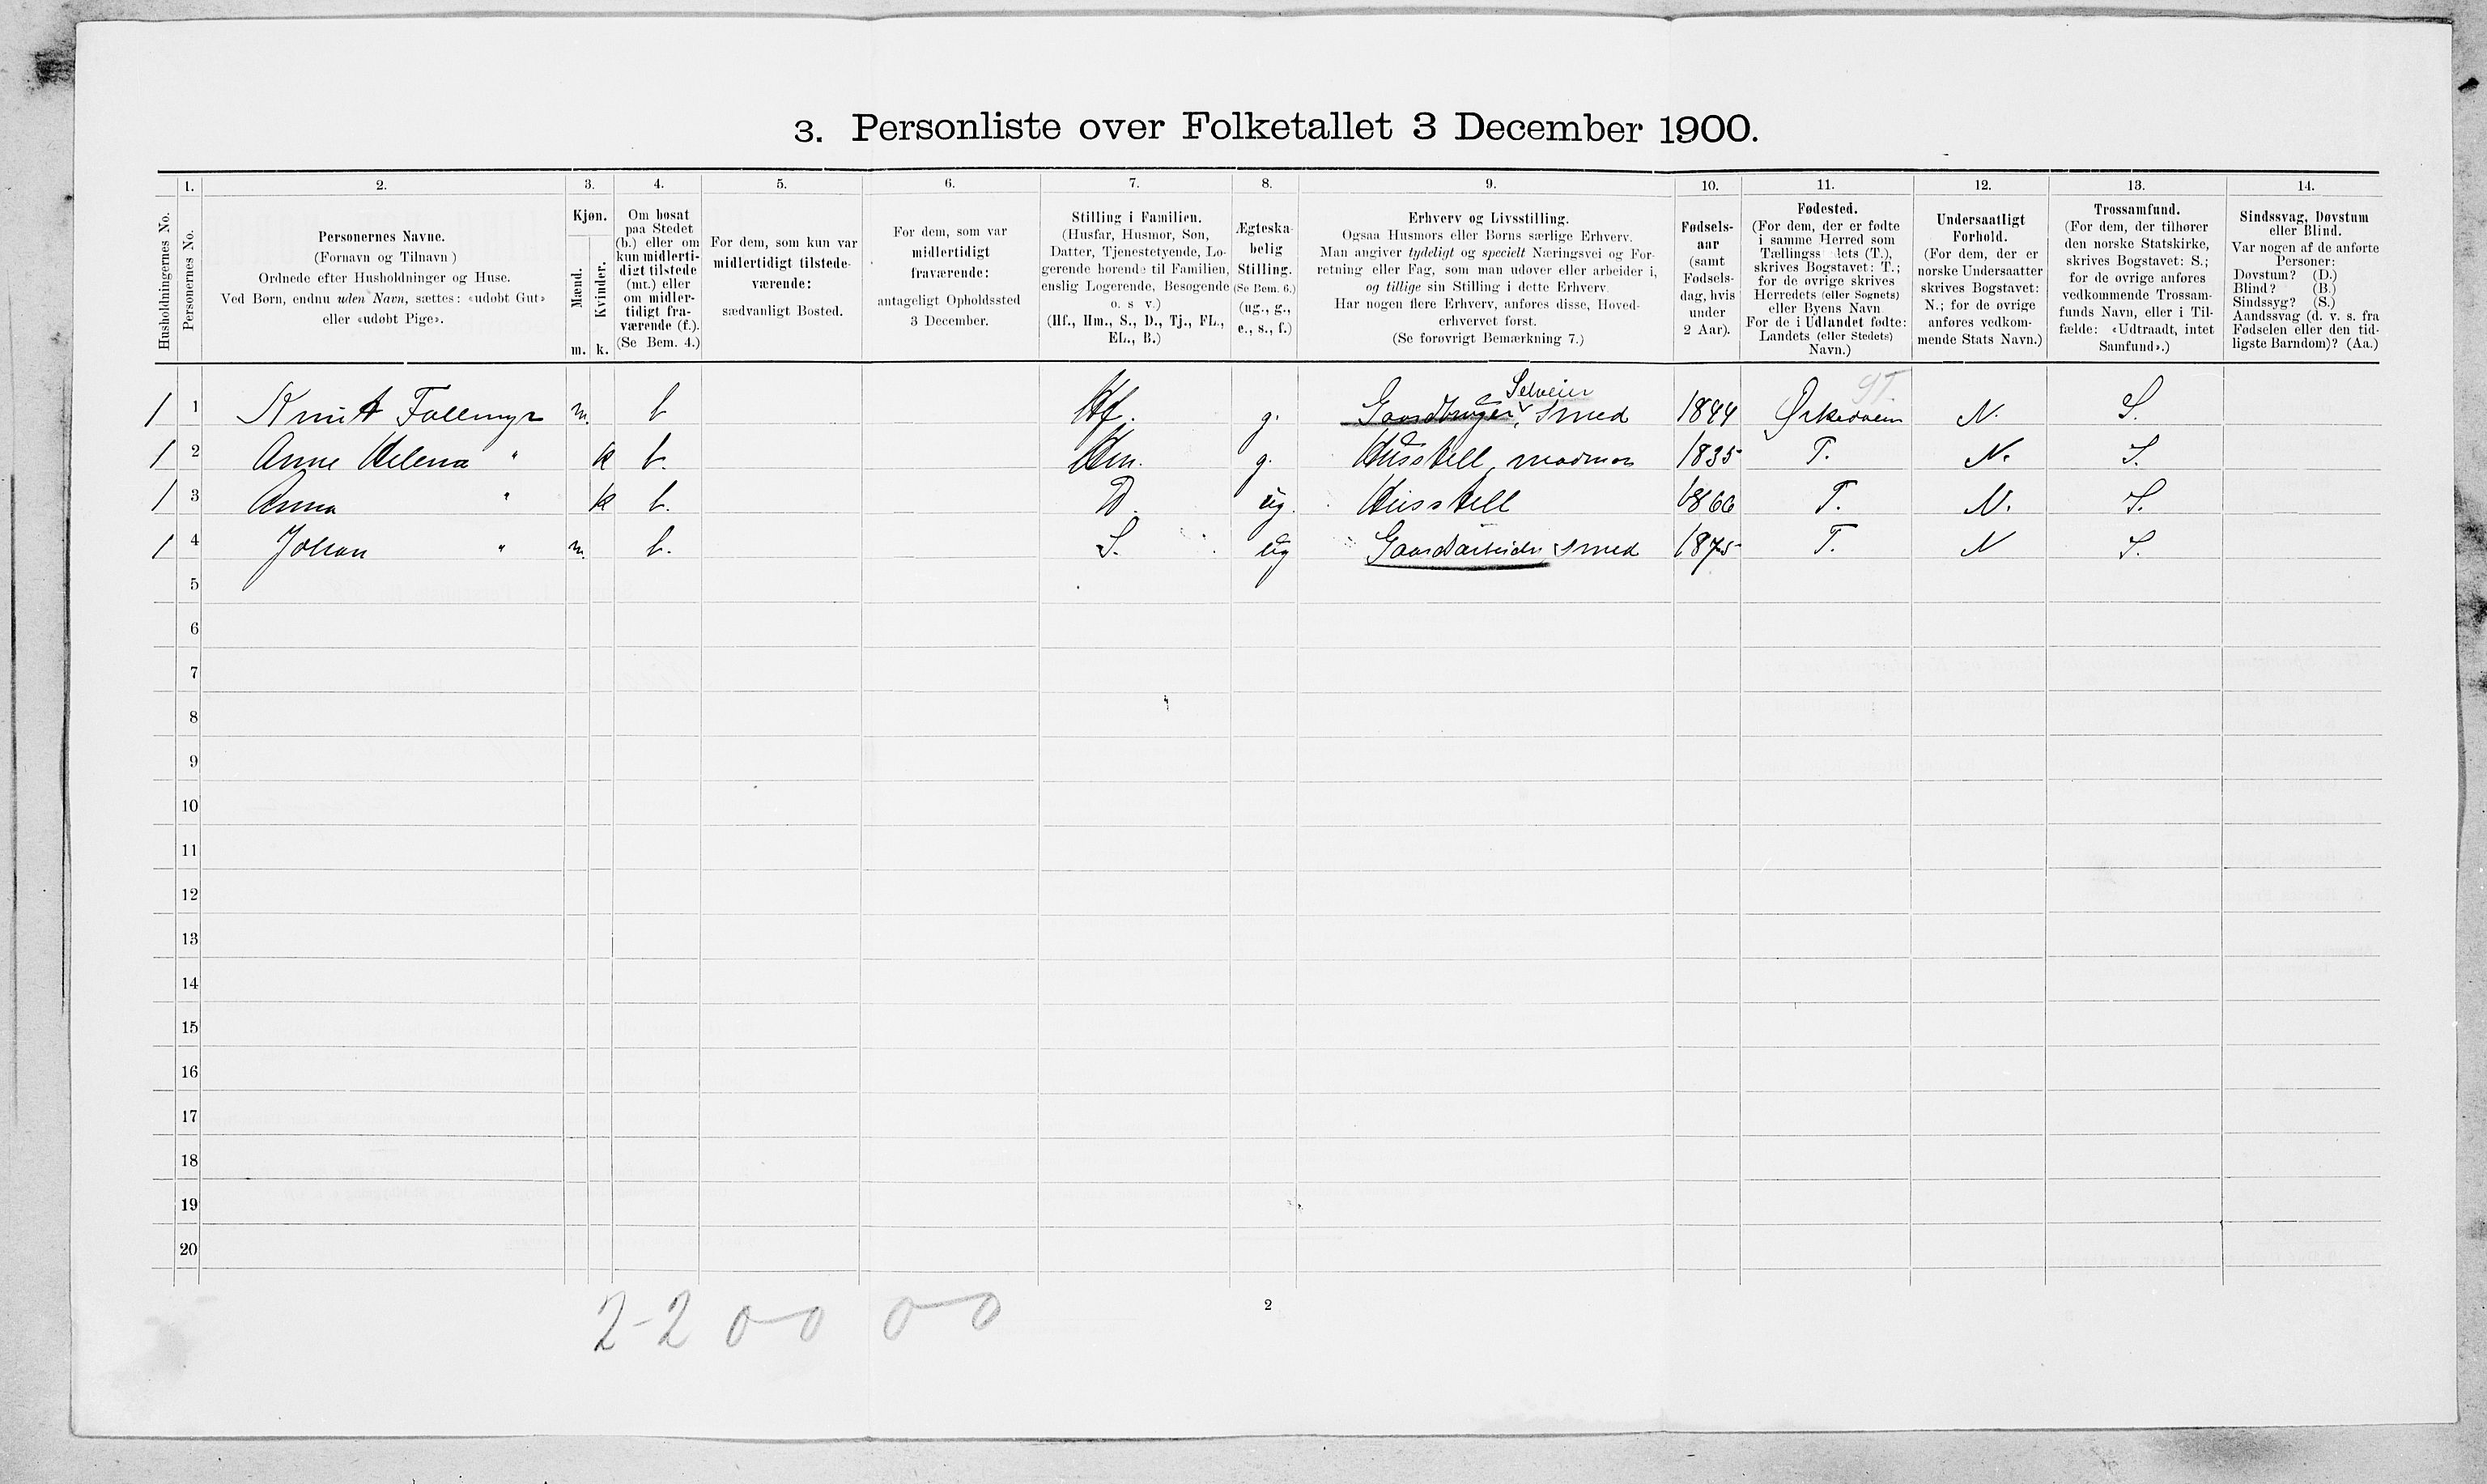 3. Personliste over Folketallet 3 December 1900.
1. 2. 3. 4. 5. 6. 7. 8. 9. 10. 11. 12. 13. 14.
Husholdningernes No.
Personernes No.
Personernes Navne.
(Fornavn og Tilnavn)
Ordnede efter Husholdninger og Huse.
Ved Børn, endnu uden Navn, sættes: «udøbt Gut»
eller «udøbt Pige».
Kjøn.
Mænd.
Kvinder.
m. k.
Om bosat
paa Stedet
(b.) eller om
kun midlerti-
digt tilstede
(mt.) eller
om midler-
tidigt fra-
værende (f.).
(Se Bem. 4.)
For dem, som kun var
midlertidigt tilstede-
værende:
sædvanligt Bosted.
For dem, som var
midlertidigt
fraværende:
antageligt Opholdssted
3 December.
Stilling i Familien.
(Husfar, Husmor, Søn,
Datter, Tjenestetyende, Lo-
gerende hørende til Familien,
enslig Logerende, Besøgende
o. s v.)
(Hf., Hm., S., D., Tj., FL.,
EL., B.)
Ægteska-
belig
Stilling.
(Se Bem. 6.)
(ug., g.,
e., s., f.)
Erhverv og Livsstilling.
Ogsaa Husmors eller Børns særlige Erhverv.
Man angiver tydeligt og specielt Næringsvei og For-
retning eller Fag, som man udøver eller arbeider i,
og tillige sin Stilling i dette Erhverv.
Har nogen flere Erhverv, anføres disse, Hoved-
erhvervet først.
(Se forøvrigt Bemærkning 7.)
Fødsels-
aar
(samt
Fødsels-
dag, hvis
under
2 Aar).
Fødested.
(For dem, der er fødte
i samme Herred som
Tællingss lets (T.),
skrives Bogstavet: T.;
for de øvrige skrives
Herredets (eller Sognets)
eller Byens Navn
For de i Udlandet fødte:
Landets (eller Stedets)
Navn.)
Undersaatligt
Forhold.
(For dem, der er
norske Undersaatter
skrives Bogstavet:
N.; for de øvrige
anføres vedkom-
mende Stats Navn.)
Trossamfund.
(For dem, der tilhører
den norske Statskirke,
skrives Bogstavet: S.;
for de øvrige anføres
vedkommende Trossam-
funds Navn, eller i Til-
fælde: «Udtraadt, intet
Samfund».)
Sindssvag, Døvstum
eller Blind.
Var nogen af de anførte
Personer:
Døvstum? (D.)
Blind? (B.)
Sindssyg? (S.)
Aandssvag (d. v. s. fra
Fødselen eller den tid-
ligste Barndom)? (Aa.)
Selveier ST
1 1 Knut Follmyr m. b Hf. g. Gaardbruger, Smed 1844 Ørkedalen N. S.
1 2 Anne Helena " k b. Hm. g. Husstell, madmor 1835 T. N. S.
1 3 Anna " k b. D. ug. Husstell 1866 T. N. S.
1 4 Johan " m. b. S. ug Gaardarbeider, Smed 1875 T. N S.
5
6
7
8
9
10
11
12
13
14
15
16
17
18
19
20
2-2 0-0 0-0
2